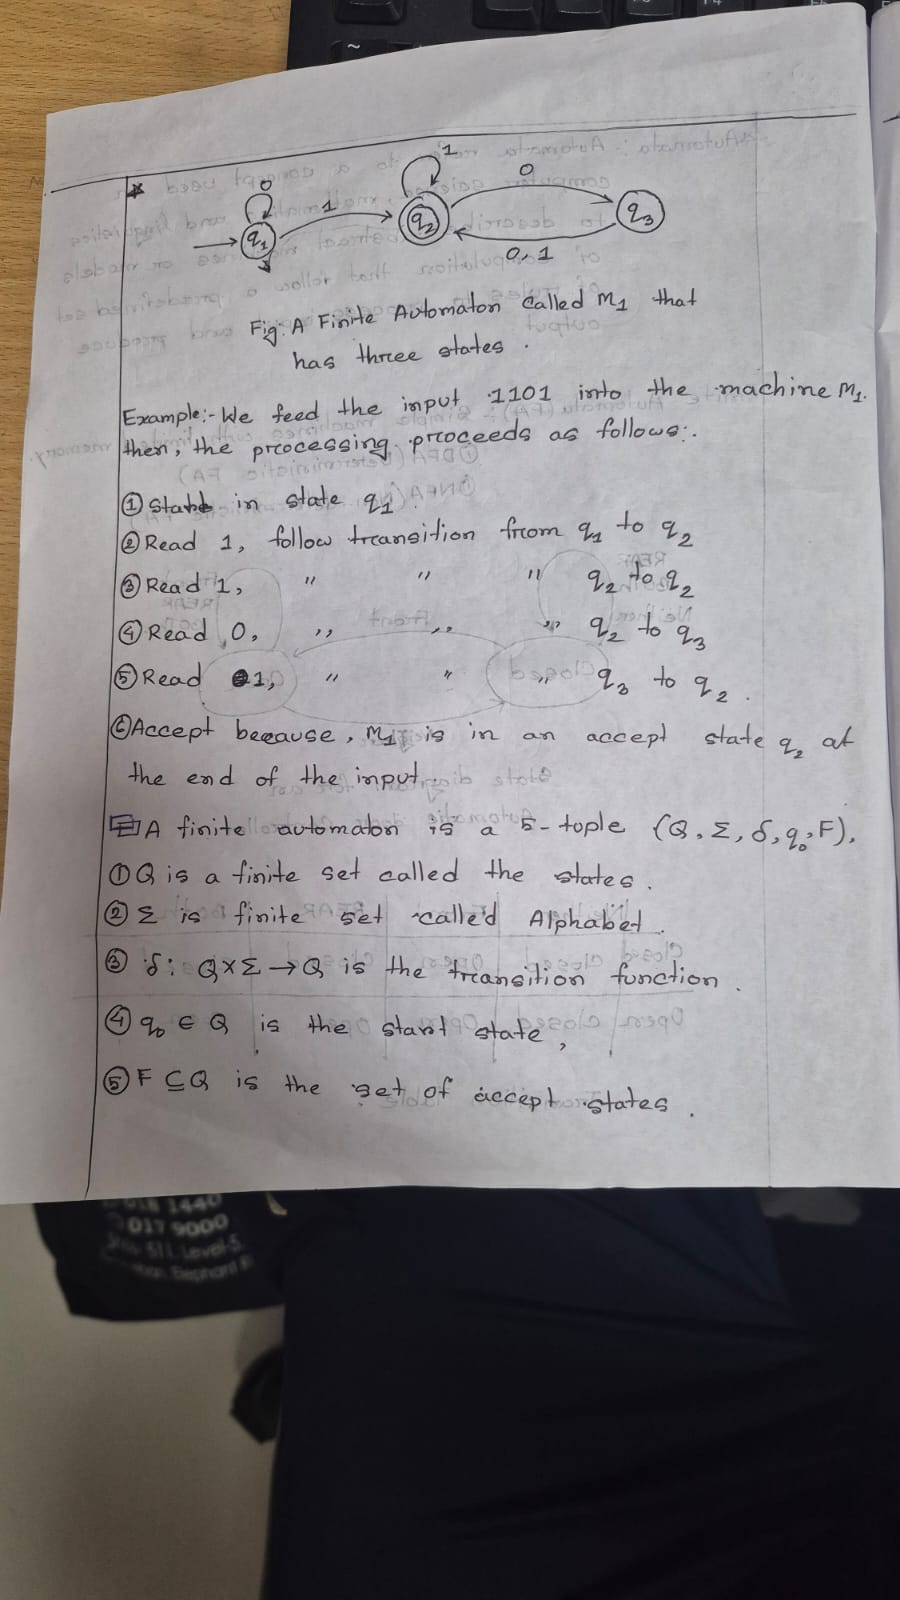 0
1
1
0
q1
q2
q3
0,1
Fig: A Finite Automaton called M1 that
has three states.
Example:- We feed the input 1101 into the machine M1.
then, the processing proceeds as follows:-
① Start in state q1.
② Read 1, follow transition from q1 to q2
③ Read 1, " " " q2 to q2
④ Read 0, " " " q2 to q3
⑤ Read 1, " " " q3 to q2.
⑥ Accept because, M1 is in an accept state q2 at
the end of the input.
A finite automaton is a 5-tuple (Q, Σ, δ, q0, F).
① Q is a finite set called the states.
② Σ is finite set called Alphabet.
③ δ: Q×Σ→Q is the transition function.
④ q0 ∈ Q is the start state,
⑤ F ⊆ Q is the set of accept states.
017 9000
Level-5
Elephant